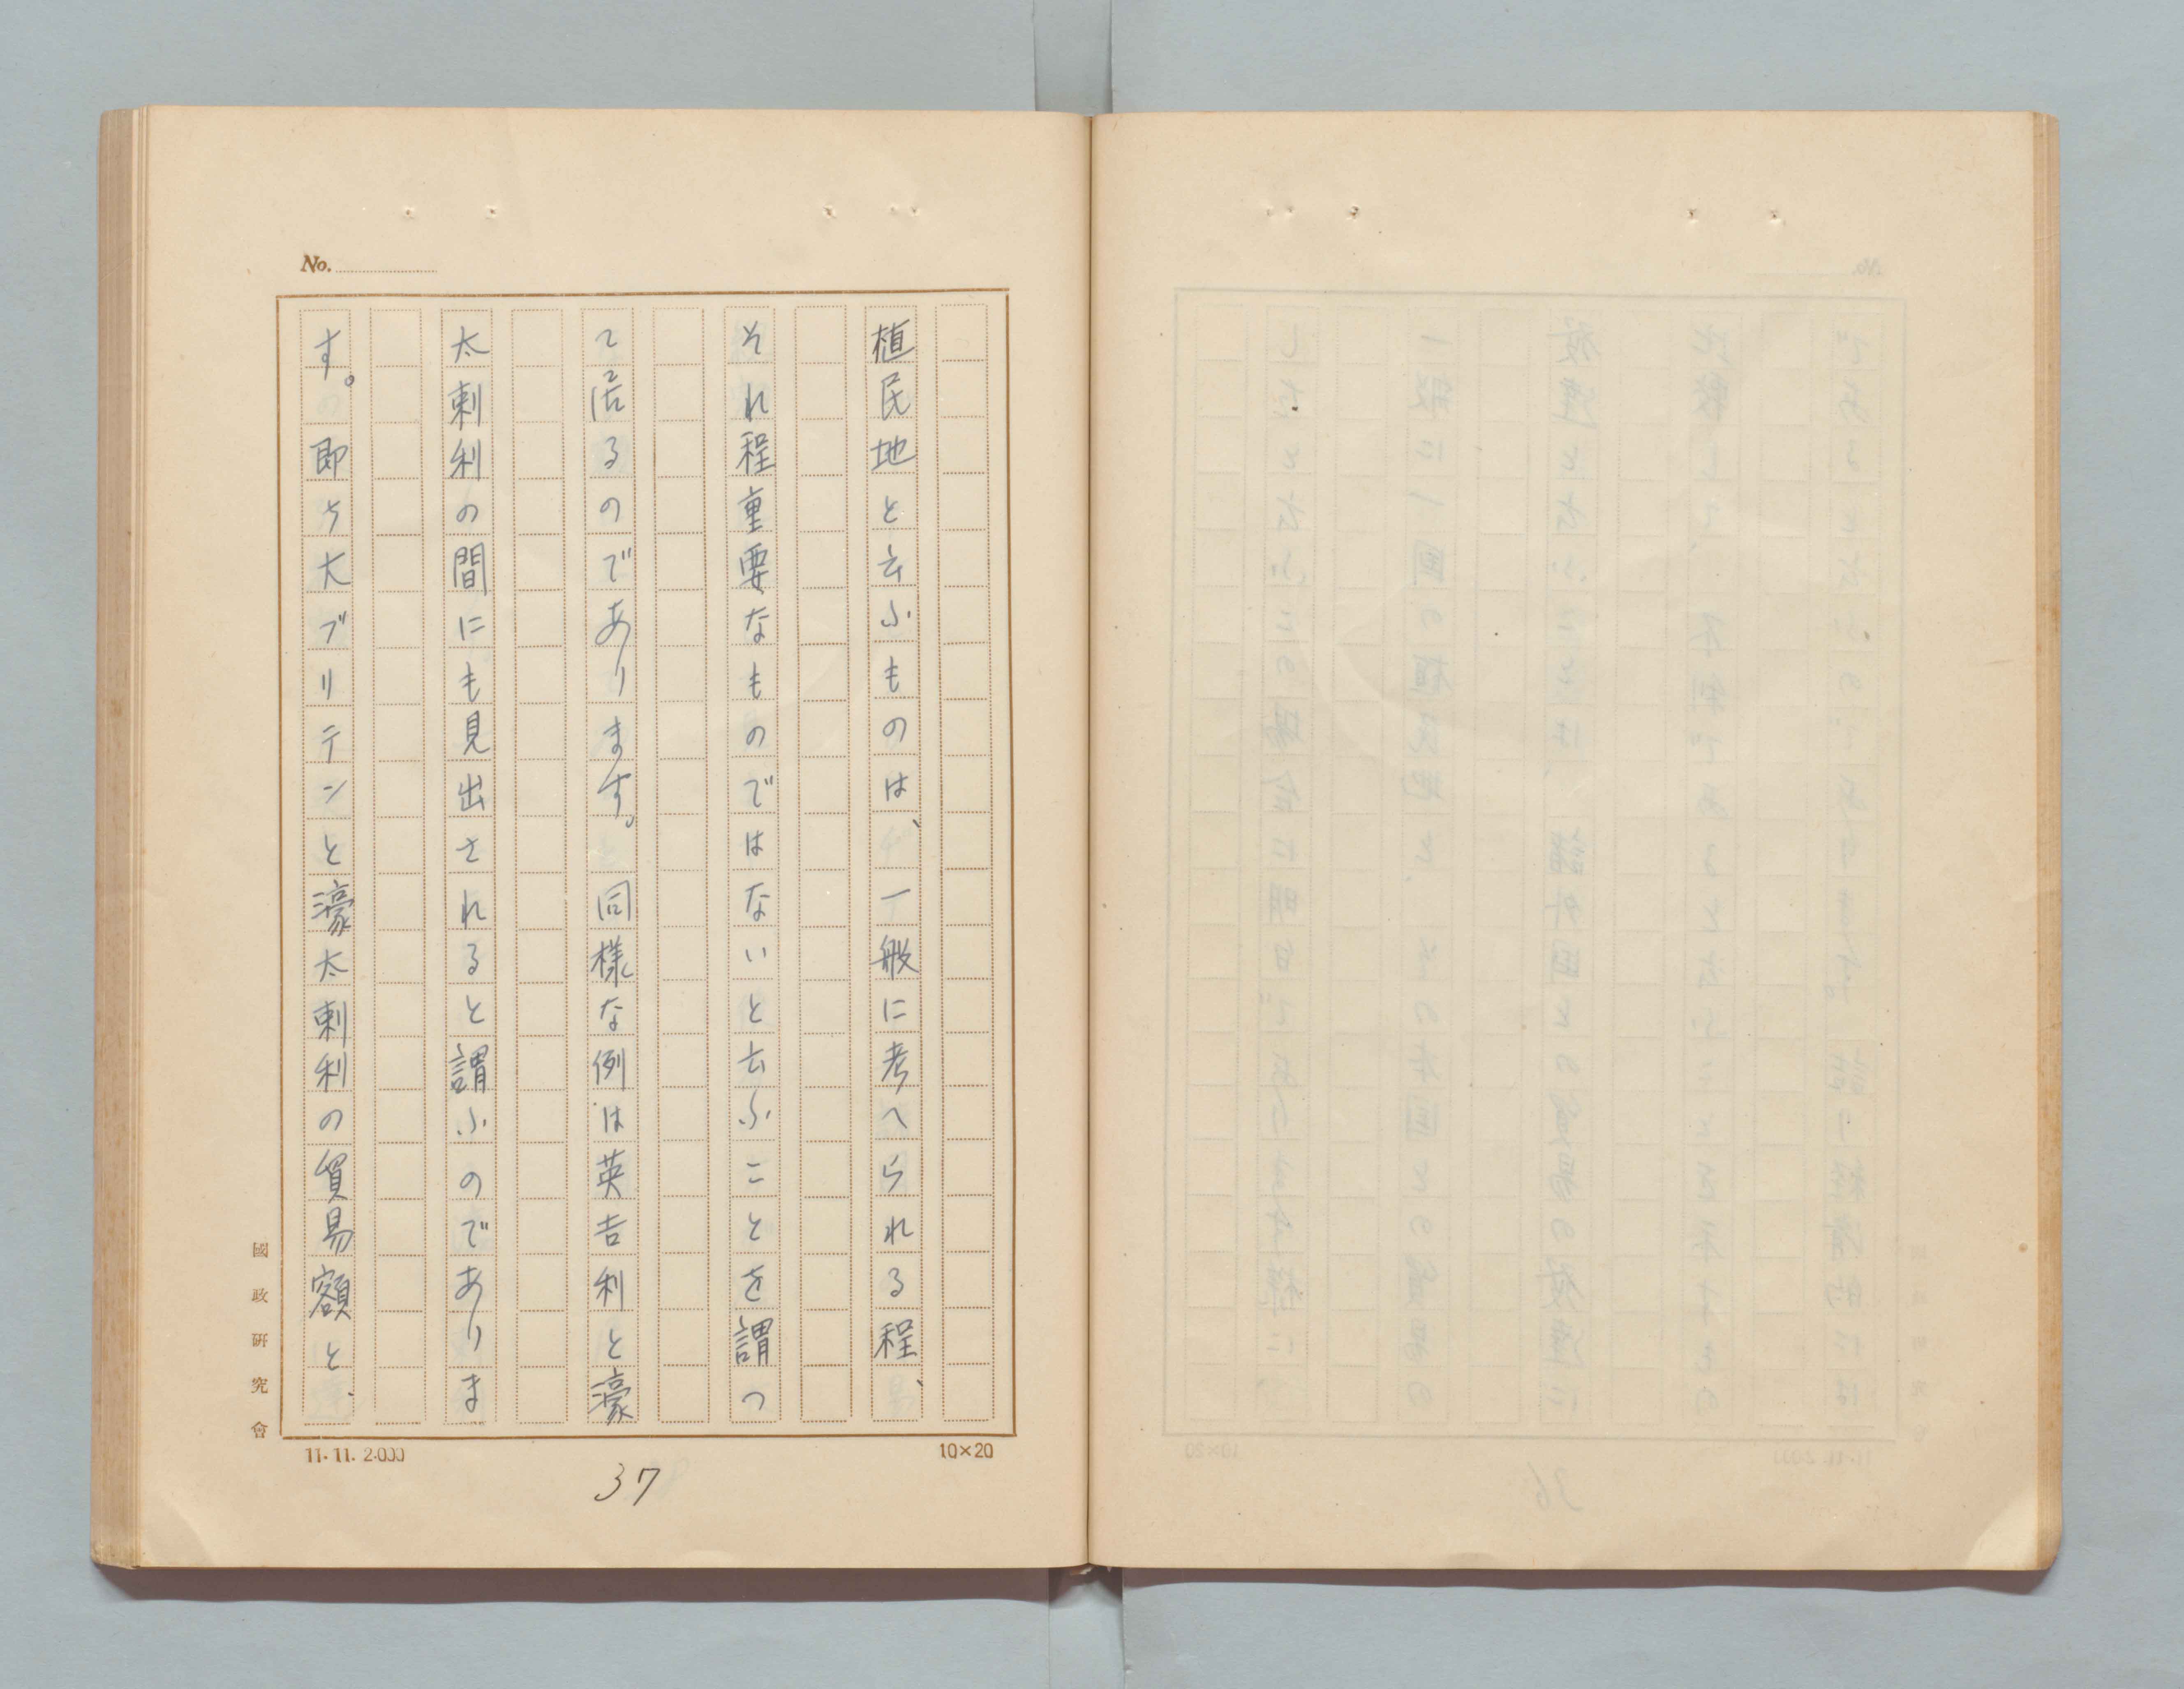 No.
植民地と云ふものは、一般に考へられる程、
それ程重要なものではないと云ふことを謂つ
て居るのであります。同様な例は英吉利と濠
太剌利の間にも見出されると謂ふのでありま
す。即ち大ブリテンと濠太剌利の貿易額と、
國政研究會
11.11. 2.000
10×20
37